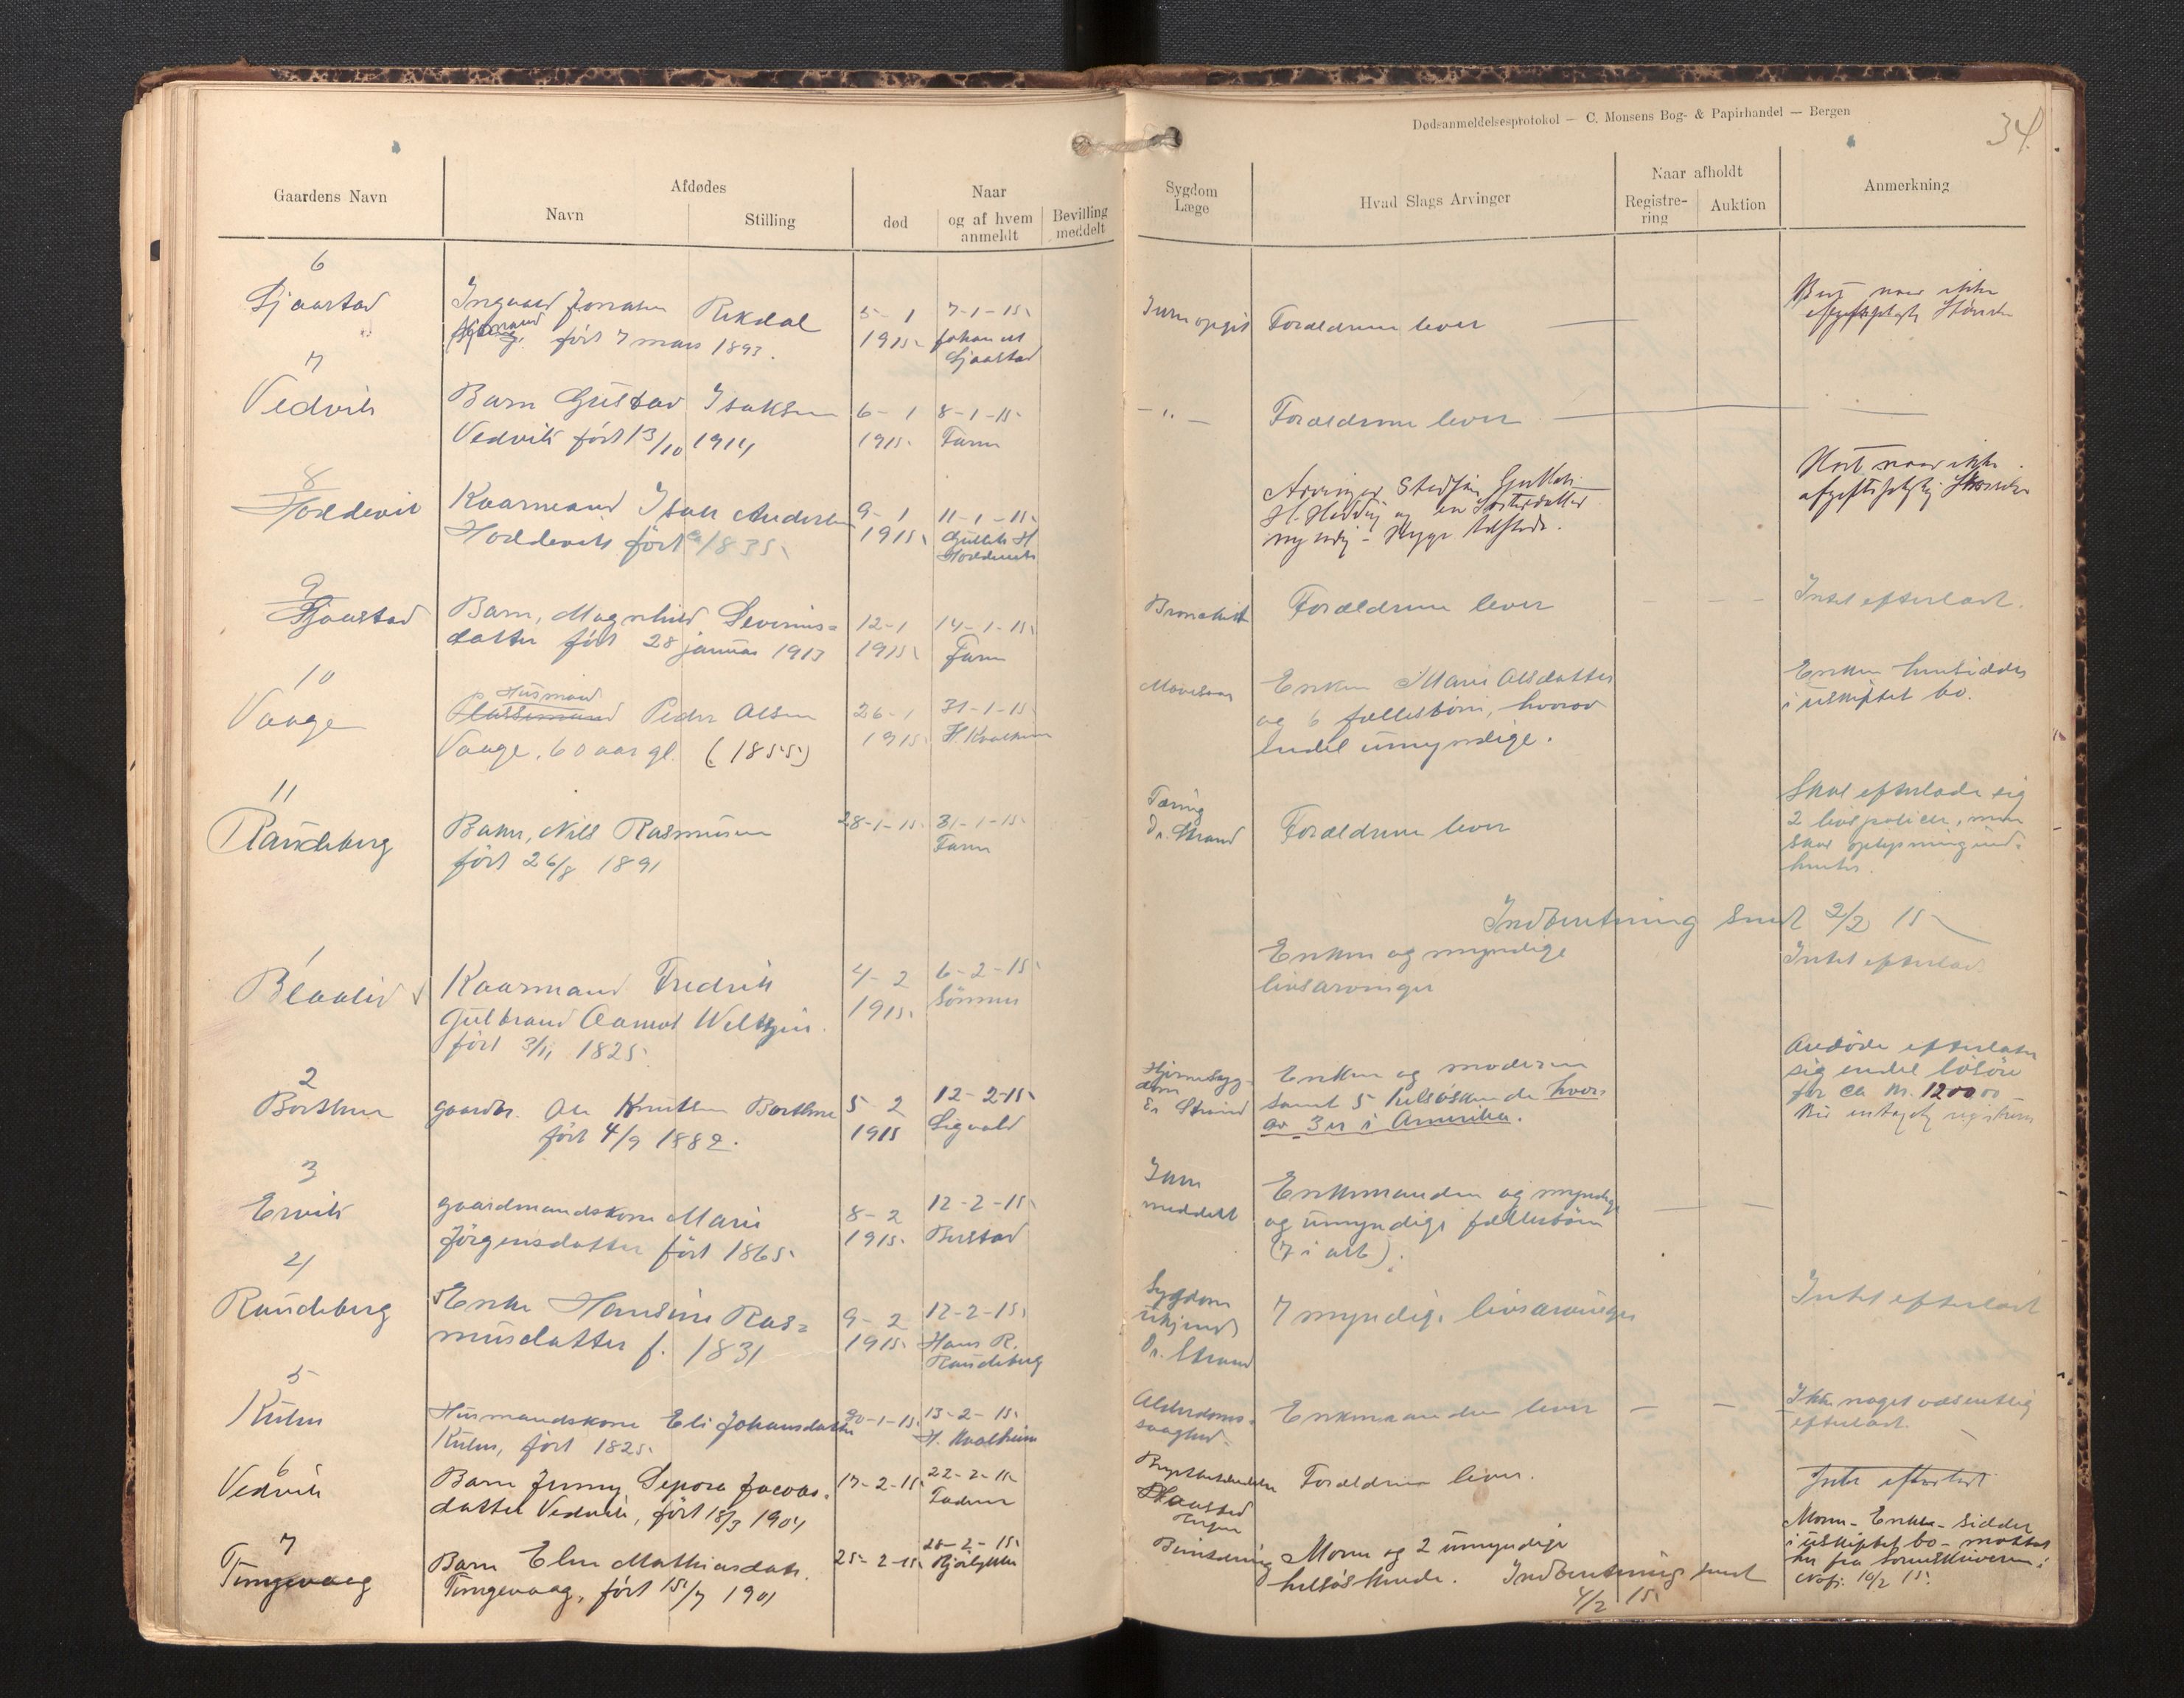 Dødsanmeldelsesprotokol — C. Monsens Bog- & Papirhandel — Bergen
34
Gaardens Navn
Afdødes
Navn
Stilling
Naar
død
og af hvem anmeldt
Bevilling meddelt
Sygdom
Læge
Hvad Slags Arvinger
Naar afholdt
Registre-
ring
Auktion
Anmerkning
6
Sjaastad
Rekdal
født 7 mars 1893.
5-1
1915
7-1-15
Johannes
Sjaastad
Forældrene lever
7
Vedvik
Barn Gustav Isaksen
Vedvik født 13/10 1914
6-1
1915
8-1-15
Faren
— " —
Forældrene lever
8
Hoddevik
Kaarmand Isak Andersen
Hoddevik født ca 1835
9-1
1915
11-1-15
Gullik H
Hoddevik
9
Sjaastad
Barn, Magnhild Severins=
datter født 28 januar 1913
12-1
1915
14-1-15
Faren
Bronchit
Forældrene lever
— — —
Intet efterladt.
10
Vaage
Husmand
Plassemand Peder Olsen
Vaage. 60 aar gl. (1855)
26-1
1915
31-1-15
H Kvalheim
Mavesaar
Enken Marie Olsdatter
og 6 fællesbørn, hvorav
endel umyndige.
Enken hensidder
i uskiftet bo.
11
Raudeberg
Baker, Nils Rasmussen
født 26/8 1891
28-1-15
31-1-15
Faren
Tæring
Dr. Strand
Forældrene lever
Skal efterlade sig
2 livspolicer, men
skal oplysning ind-
hentes.
Indberetning sendt 2/2 15
1
Blaalid
Kaarmand Fredrik
Gulbrand Aamot Weltzin
født 3/11 1825
4-2
1915
6-2-15
Sønnen
Enken og myndige
livsarvinger
Intet efterladt
2
Borthne
gaardbr. Ole Knutsen Borthne
født 4/9 1882.
5 2
1915
12-2-15
Sigvald
Hjernesyg-
dom
Dr Strand
Enken og moderen
samt 5 helsøskende hvor-
av 3 er i Amerika.
Avdøde efterlater
sig endel løsøre
for ca kr. 1200 00
3
Ervik
gaardmandskone Marie
Jørgensdatter født 1865
8-2
1915
12-2-15
Berstad
Ikke
meddelt
Enkemanden og myndige
og umyndige fællesbørn
(7 i alt).
4
Raudeberg
Enke Hansine Ras=
musdatter f. 1831
9-2
1915
12-2-15
Hans R.
Raudeberg
Sygdom
ukjend
Dr. Strand
7 myndige livsarvinger
Intet efterladt
5
Kulen
Husmandskone Eli Johansdatter
Kulen, født 1825
20-1-15
13-2-15
H. Kvalheim
Alderdoms-
svaghed
Enkemanden lever
— —
Ikke noget væsentlig
efterladt.
6
Vedvik
Barn Jenny Sepora Jacobs-
datter Vedvik, født 18/3 1904
17-2-15
22-2-15
Faderen
Forældrene lever.
Intet efterladt
7
Tungevaag
Barn Elen Mathiasdatt.
Tungevaag, født 15/7 1901
25-2-15
28-2-15
Moren og 2 umyndige
helsøskende. Indberetning sendt
4/2 15
Moren - Enke - sidder
i uskiftet bo - mottat
her fra Sorenskriveren i
Nofj. 10/2 15.